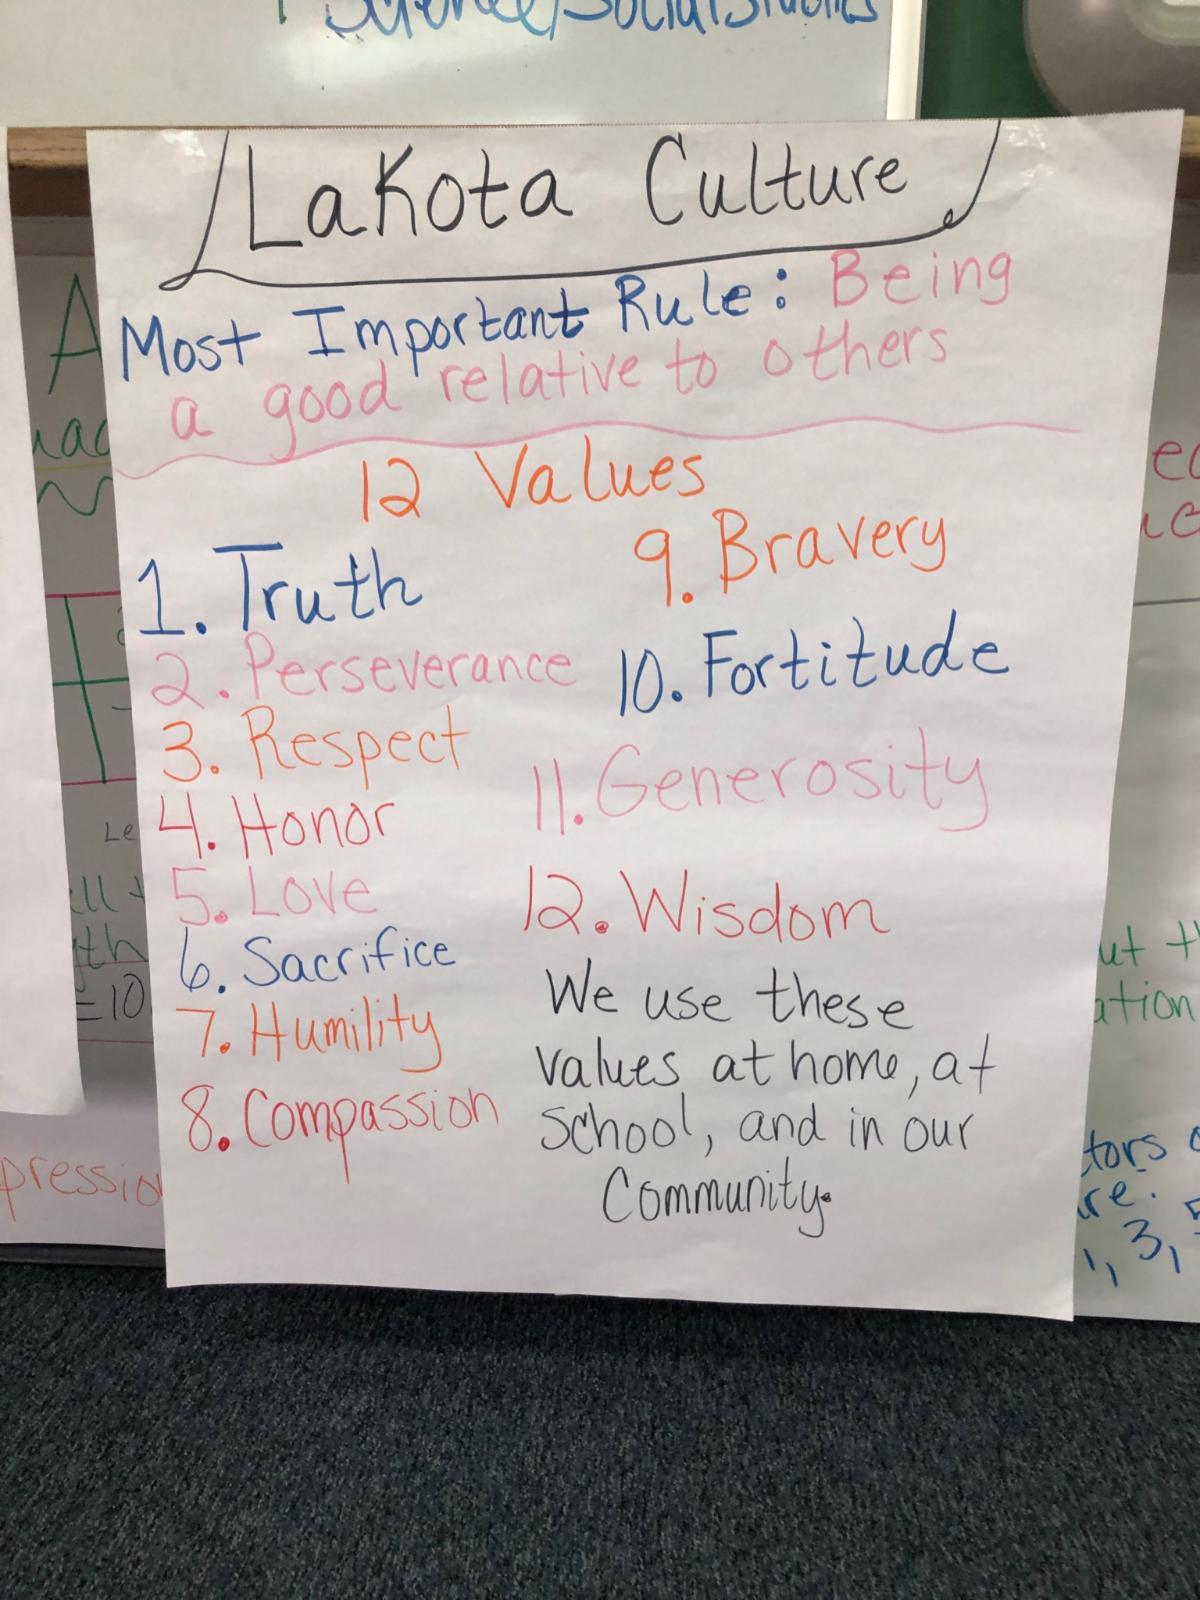 Science/Social Studies
Lakota Culture
Most Important Rule: Being
a good relative to others
12 Values
1. Truth
2. Perseverance
3. Respect
4. Honor
5. Love
6. Sacrifice
7. Humility
8. Compassion
9. Bravery
10. Fortitude
11. Generosity
12. Wisdom
We use these
values at home, at
school, and in our
Community.
=10
1, 3, 5